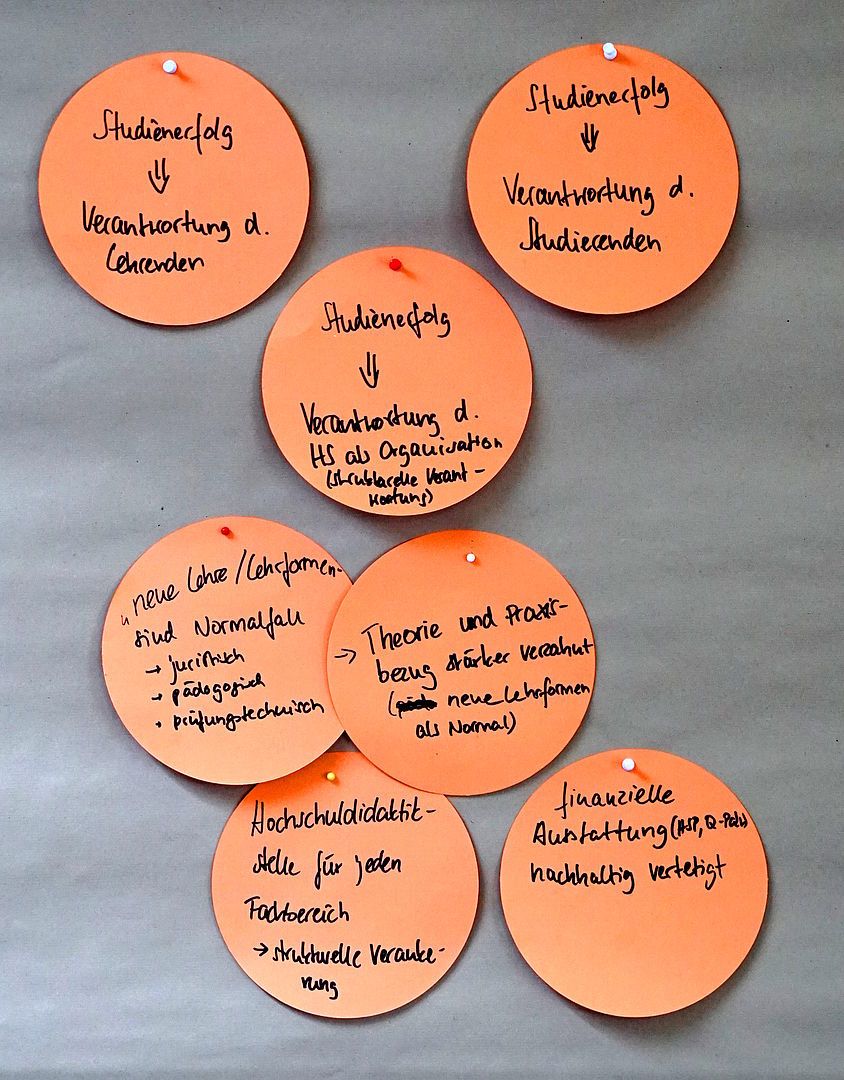 Studienerfolg
⇓
Verantwortung d.
Lehrenden
Studienerfolg
⇓
Verantwortung d.
Studierenden
Studienerfolg
⇓
Verantwortung d.
HS als Organisation
(strukturelle Verant-
wortung)
"neue Lehre/Lehrformen"
sind Normalfall
→ juristisch
→ pädagogisch
• prüfungstechnisch
→ Theorie und Praxis-
bezug stärker verzahnt
( neue Lehrformen
als Normal)
Hochschuldidaktik-
stelle für jeden
Fachbereich
→ strukturelle Veranke-
rung
finanzielle
Ausstattung (HSP, Q-Pakt)
nachhaltig vertetigt